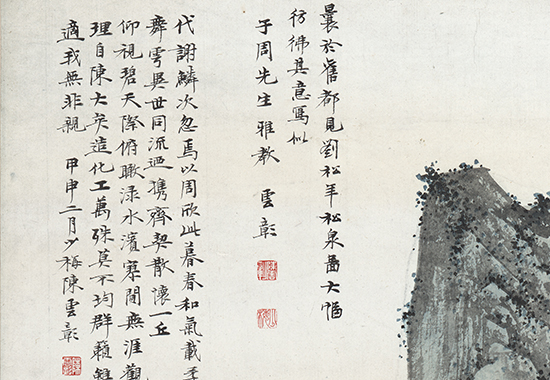 曩於舊都見劉松年松泉圖大幅
彷彿其意寫似
子周先生雅教 雲彰
代謝鱗次忽焉以周欣此暮春和氣載柔
舞雩異世同流迺攜齊契散懷一丘
仰視碧天際俯瞰淥水濱寥闃無涯觀
理自陳大矣造化工萬殊莫不均群籟雖
適我無非親 甲申二月少梅陳雲彰